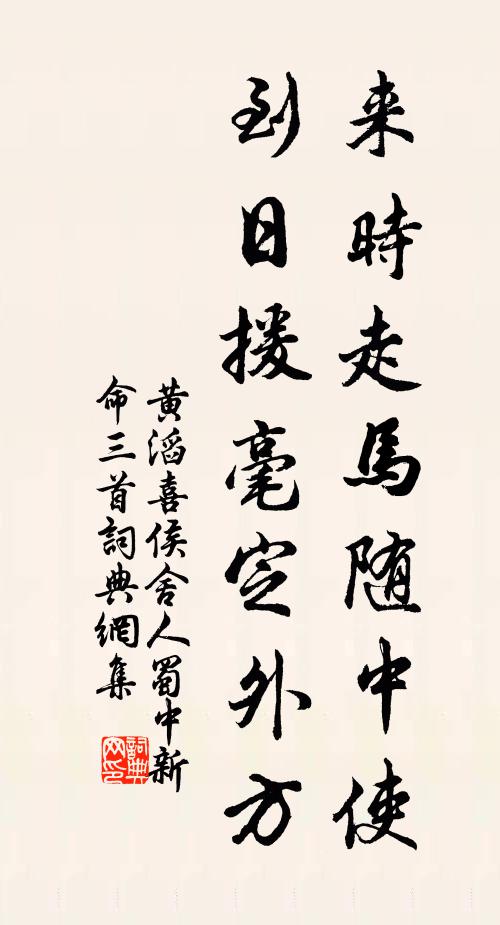 来時走馬随中使
到日援毫定外方
黄滔喜侯舍人蜀中新
命三首詞典網集
詞典網印